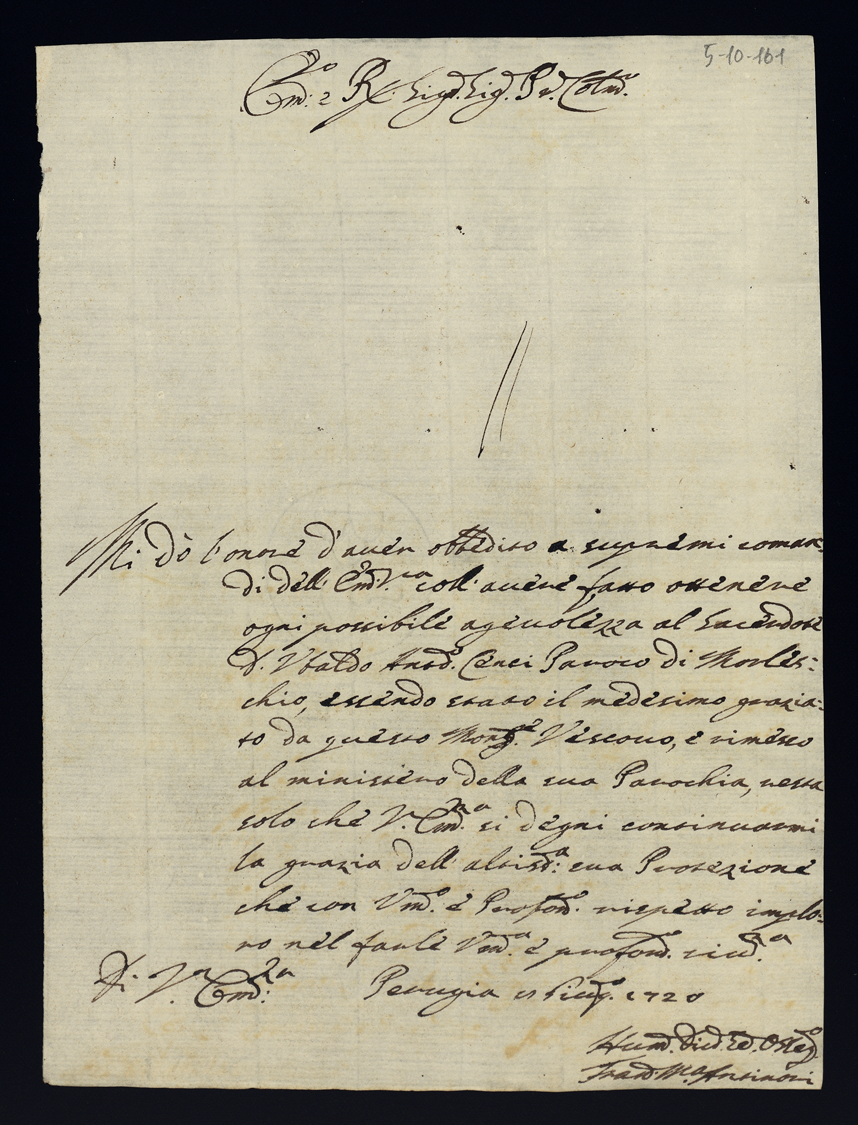 5-10-161
Em:º e R. Sig.r Sig. P.ne Col.mo
Mi dò l'onore d'aver obbedito a supremi coman-
di dell' Em.V.ra coll' avere fatto ottenere
ogni possibile agevolezza al Sacerdote
D. Ubaldo Ant.o Cenci Paroco di Morles:
chio, essendo stato il medesimo grazia:
to da questo Mong.re Vescovo, e rimesso
al ministero della sua Parochia, resta
solo che V.Em.za si degni continuarmi
la grazia dell' altis.ma sua Protezione
che con Um.o e Profon.mo rispetto implo:
ro nel farle Um.a e profon.ma riv.za
Di V.a Em:za Perugia Giug.o 1720
Hum. Div. Ed. Obleg.o
Fran. M.a Ansinori